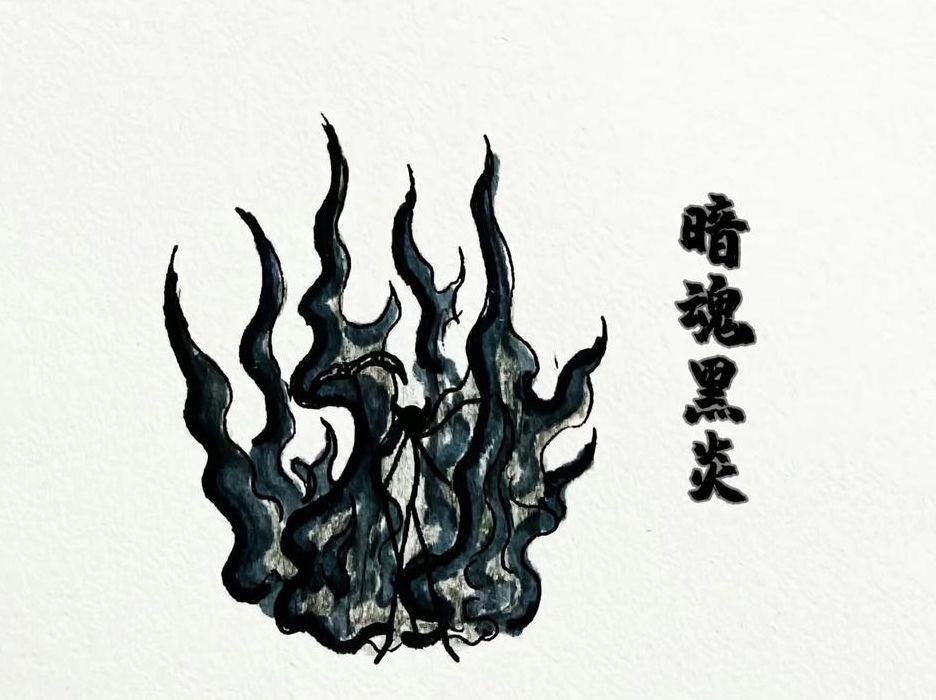 暗魂黑炎